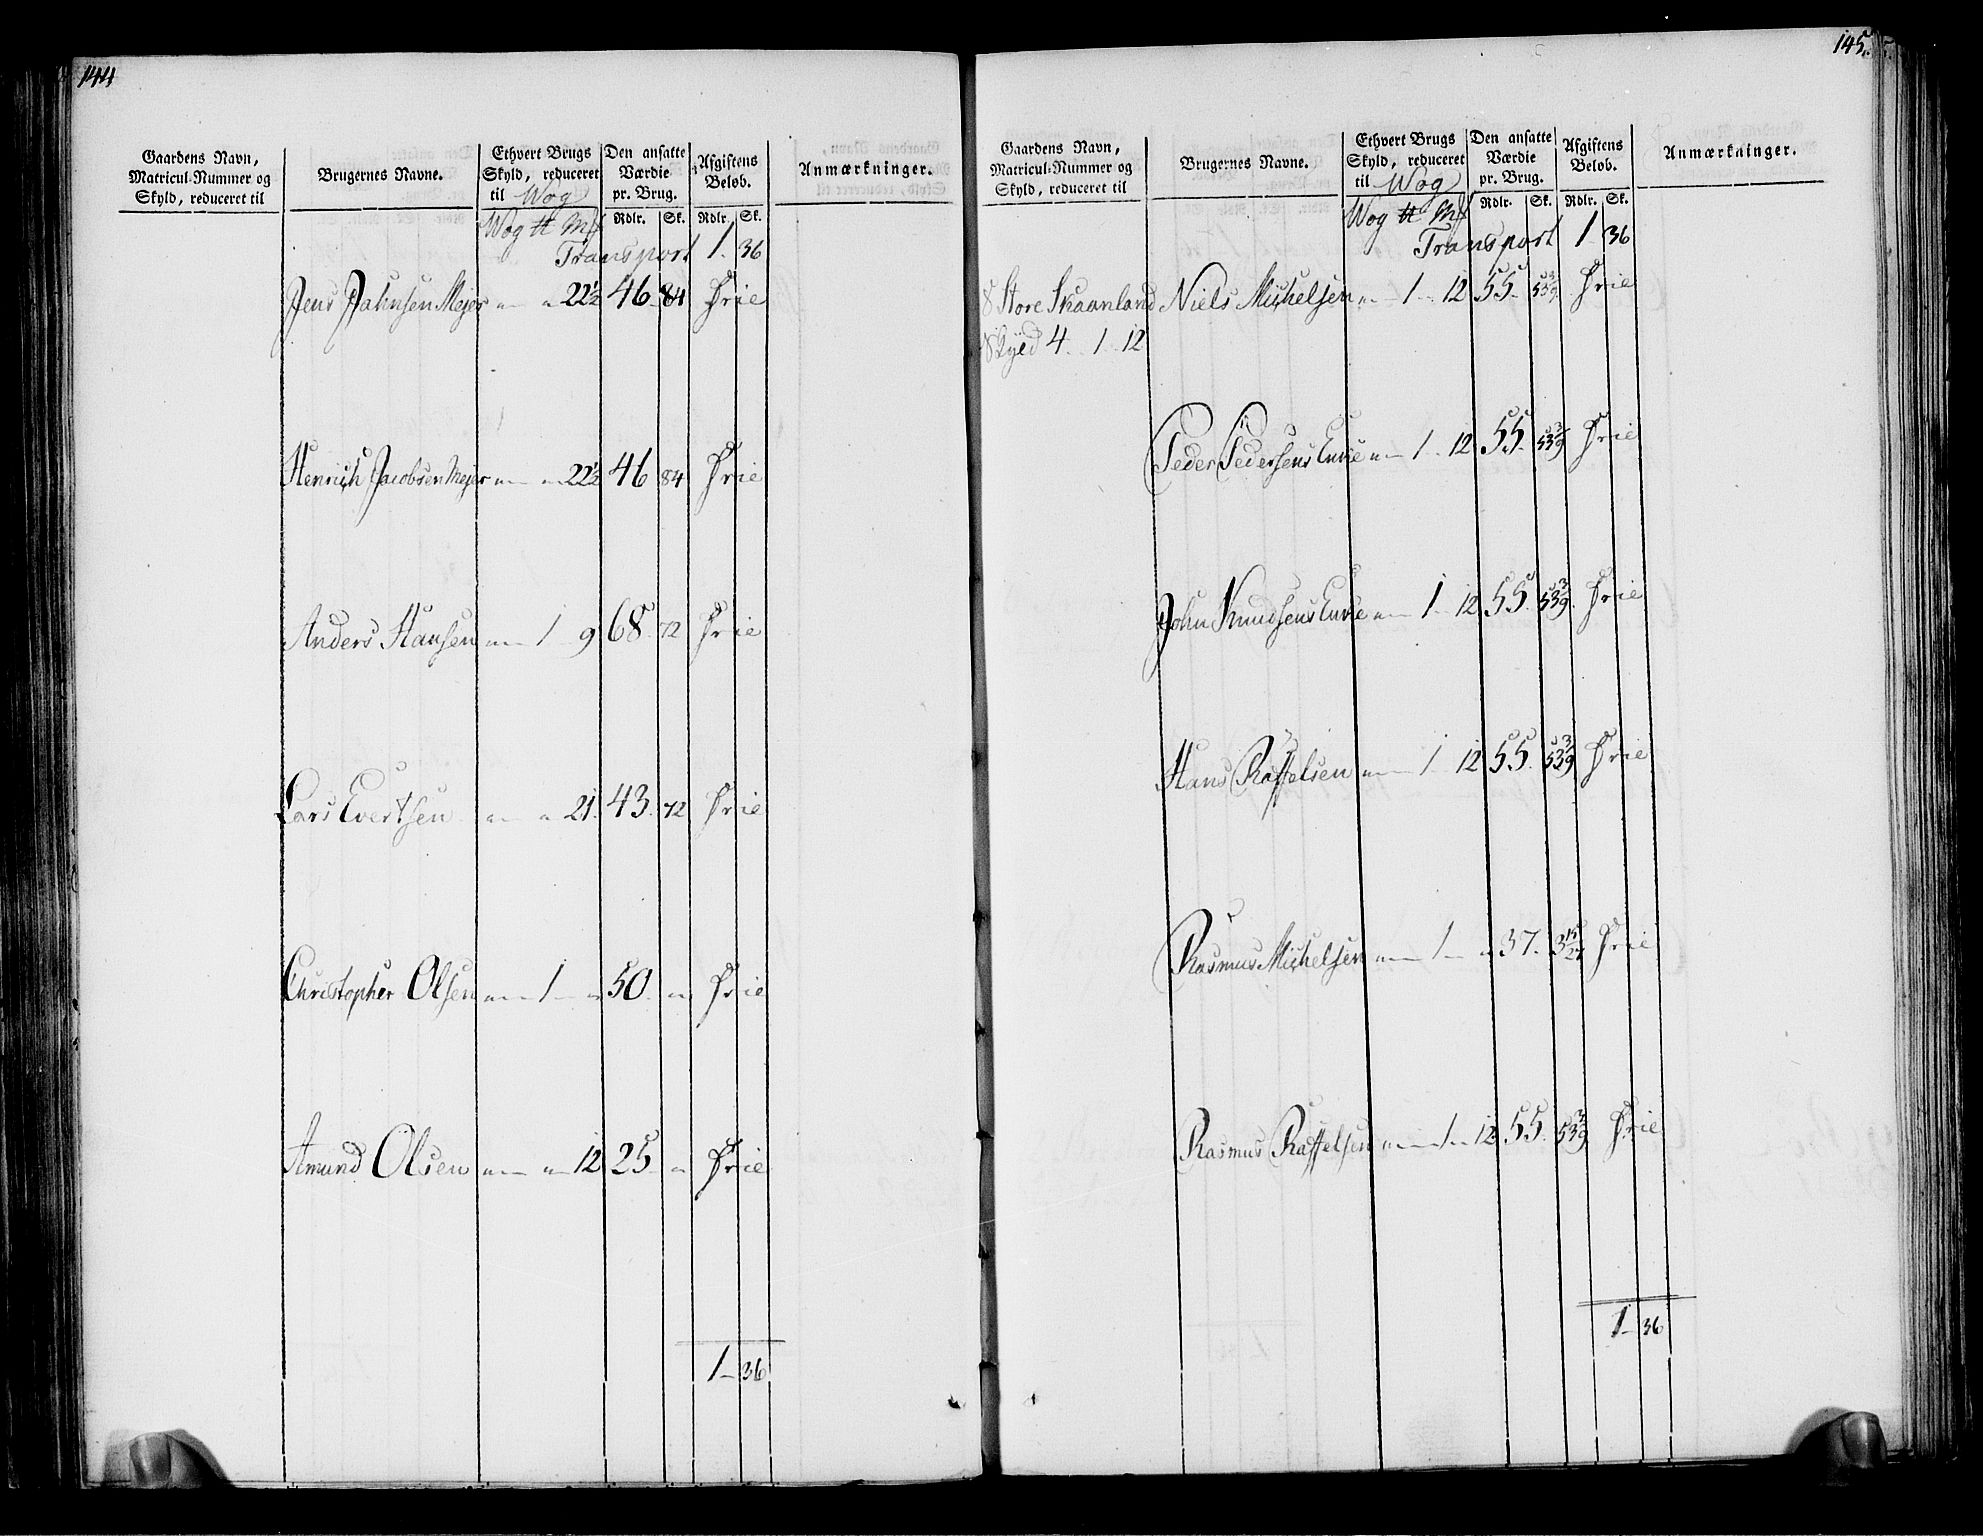 144
Gaardens Navn, Matricul-Nummer og Skyld, reduceret til
Brugernes Navne.
Ethvert Brugs Skyld, reduceret til Wog
Den ansatte Værdie pr. Brug.
Afgiftens Beløb.
Anmærkninger.
Wog ℔ Mk Rdlr. Sk. Rdlr. Sk.
Transport 1. 36
Jens Jahnsen Mejer " " 22½ 46. 84 Frie
Henrich Jacobsen Mejer " " 22½ 46 84 Frie
Anders Hansen " 1 9 68. 72 Frie
Lars Evertsen " " 21. 43. 72 Frie
Christopher Olsen " 1 " 50. " Frie
Amund Olsen " " 12 25. " Frie
1 36
145.
Gaardens Navn, Matricul-Nummer og Skyld, reduceret til
Brugernes Navne.
Ethvert Brugs Skyld, reduceret til Wog
Den ansatte Værdie pr. Brug.
Afgiftens Beløb.
Anmærkninger.
Wog ℔ Mk Rdlr. Sk. Rdlr. Sk.
Transport 1 36
8 Store Skaanland Niels Michelsen " 1 12 55. 53 3/9 Frie
Skyld 4. 1. 12
Peder Pedersens Enke " 1. 12 55. 53 3/9 Frie
John Knudsens Enke " 1 12 55. 53 3/9 Frie
Hans Raffelsen " 1 12 55. 53 3/9 Frie
Rasmus Michelsen " 1 " 37. 3 15/27 Frie
Rasmus Raffelsen " 1 12 55. 53 3/9 Frie
1 36